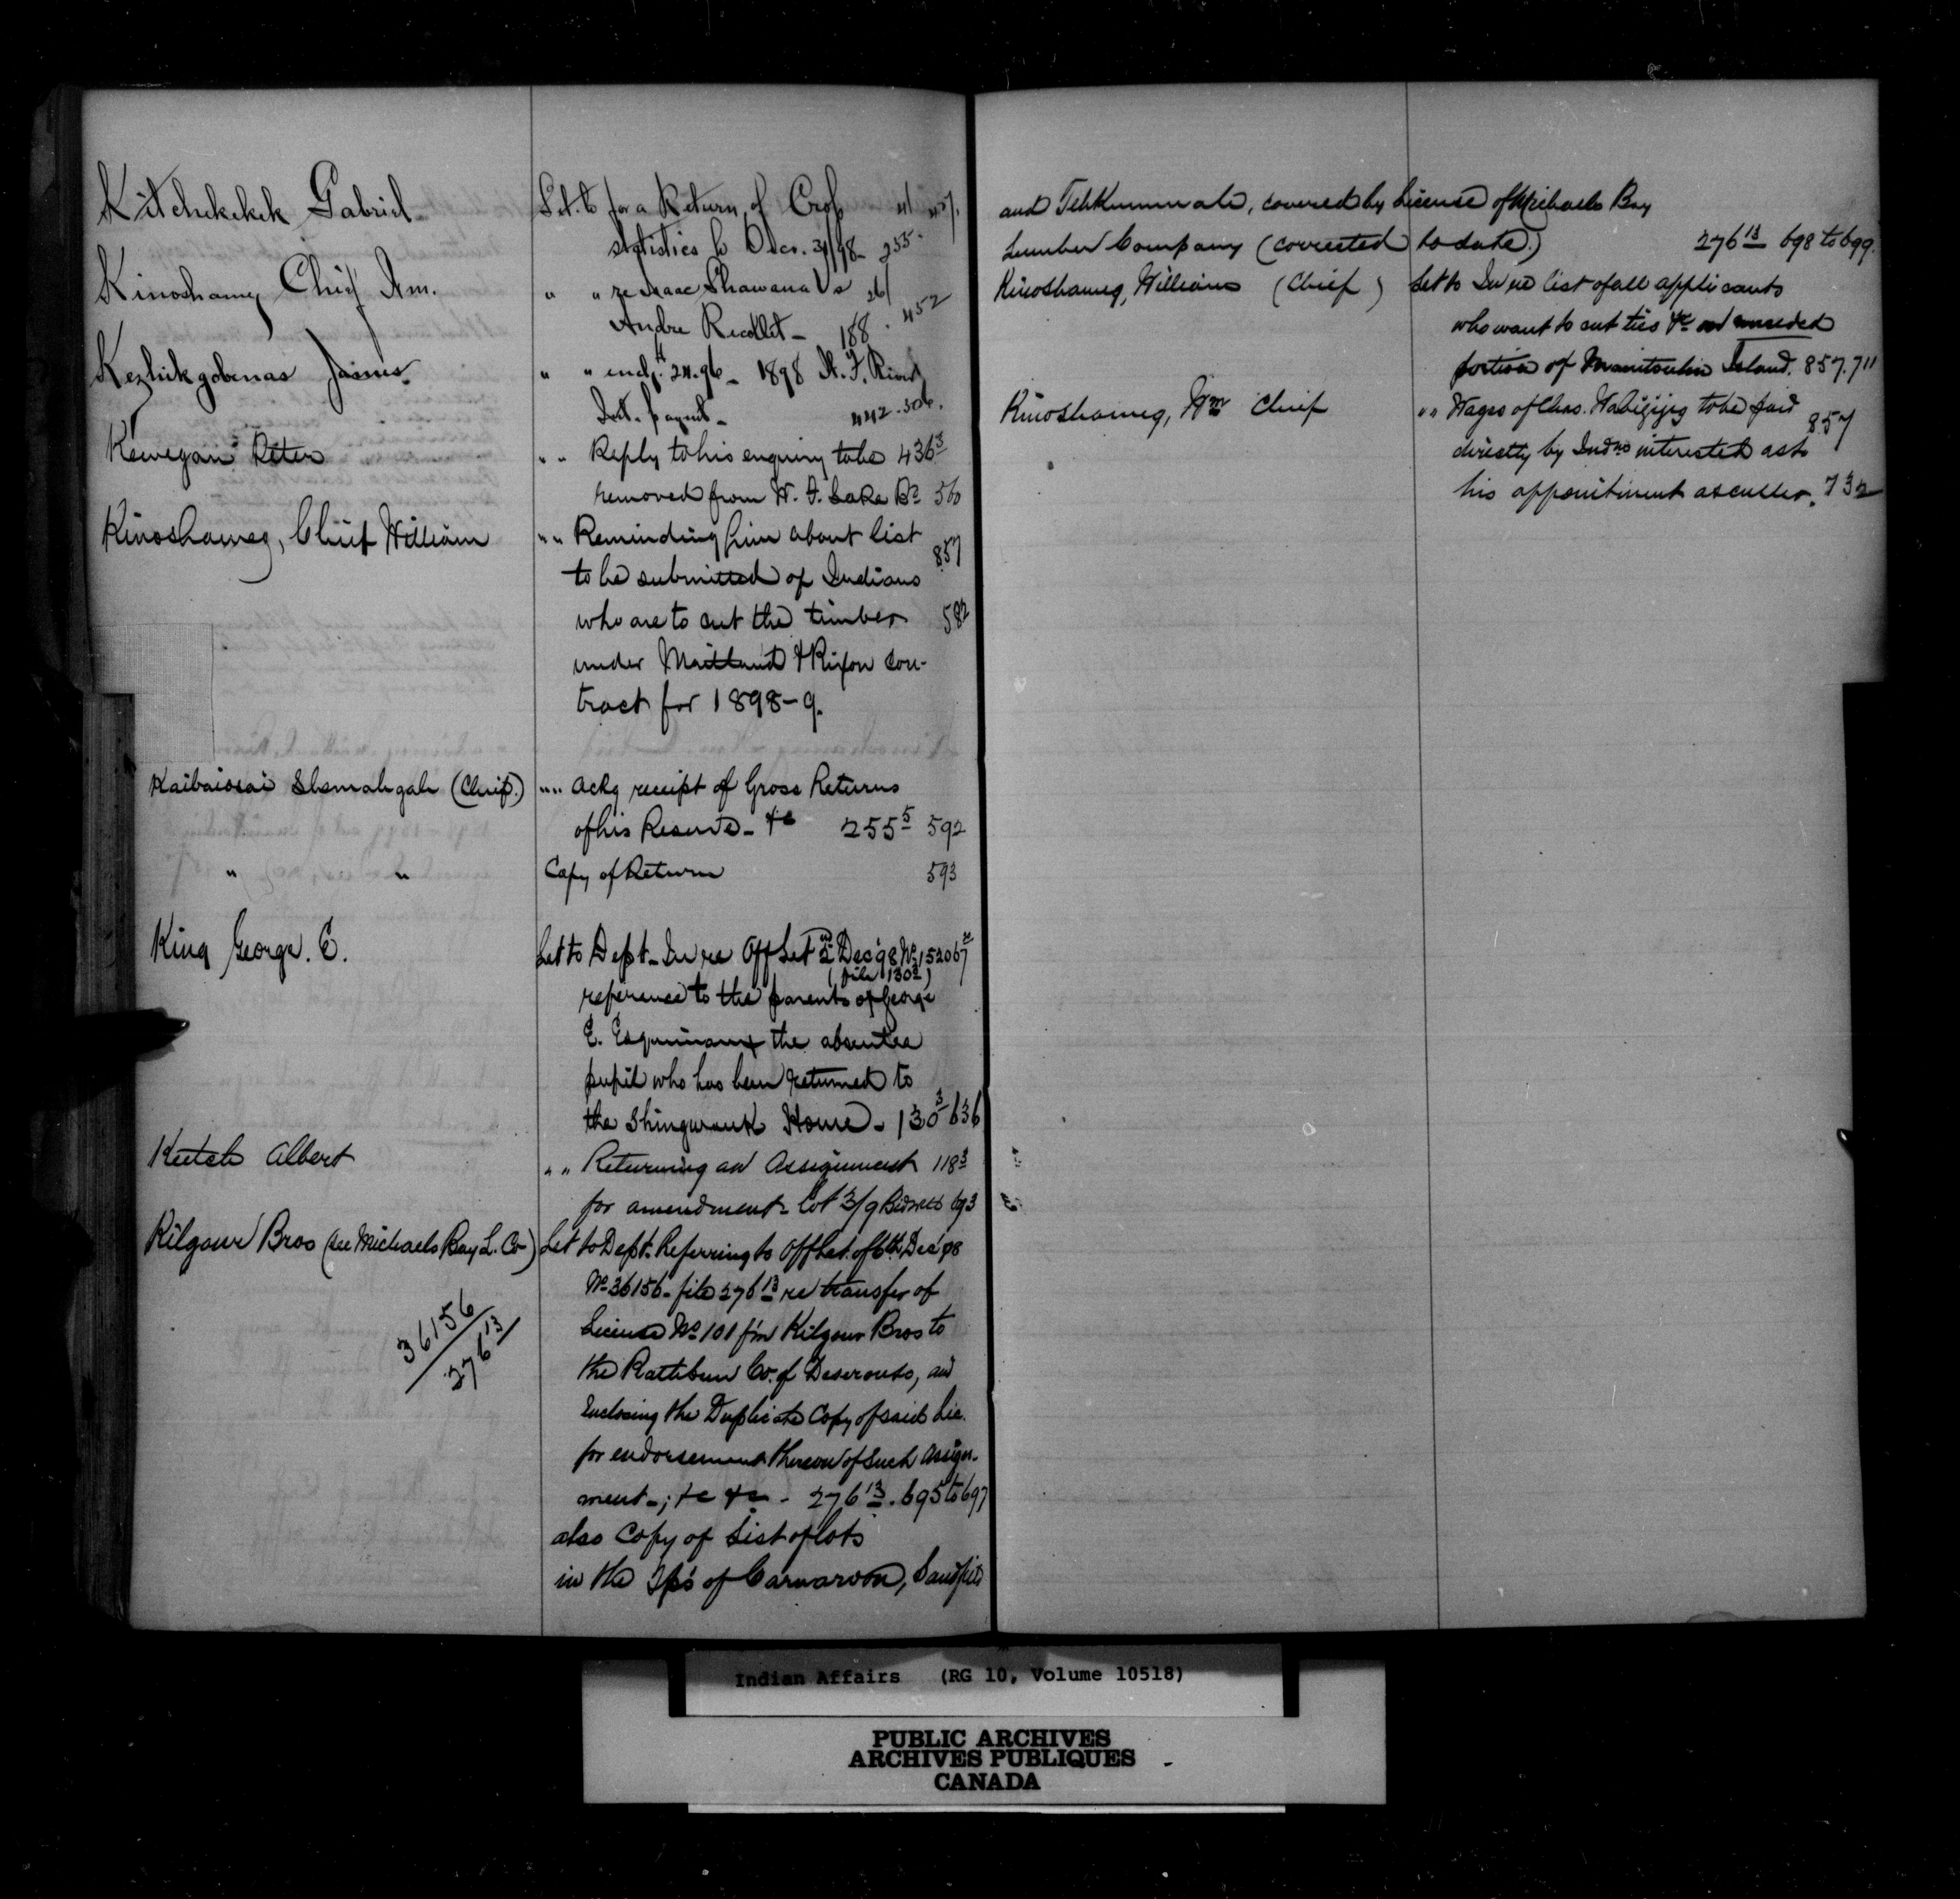 Kitchekekek Gabriel Let. to for a Return of Crop 41 457.
statistics to Dec. 31/98 - 255.
Kinoshameg Chief Wm. " " re Isaac Shawana Vs 261
Andre Recollet - 188. 452
Kezhikgobenas James. " " encl. $24.96 - 1898 W. F. River
Int. paymt - 442. 506.
Kewegan Peter " " Reply to his enquiry to be 436 3
removed from W. F. Lake Bd 560
Kinoshameg, Chief William " " Reminding him about list
to be submitted of Indians 857
who are to cut the timber 582
under Maitland & Rixon con-
tract for 1898-9.
Kaibaiosai Shemahgah (Chief.) " " Ackg receipt of Gross Returns
of his Reserve - &c 255 5 592
" " Copy of Return 593
King George. E. Let to Dept - In re Off Let 2nd Dec '98 No 152067
(file 130 3)
reference to the parents of George
E. Esquimaux the absentee
pupil who has been returned to
the Shingwauk Home - 130 3 636
Keetch Albert " " Returning an Assignment 118 3
for amendment - Lot 3/9 Bidwell 693
Kilgour Bros (see Michaels Bay L. Co) Let to Dept. Referring to Off Let. of 6th Dec '98
No 36156 - file 276 13 re transfer of
License No 101 f'm Kilgour Bros to
the Rathbun Co. of Deseronto, and
36156
276 13
Enclosing the Duplicate Copy of said Lic.
for endorsement thereon of such assign-
ment -; &c &c - 276 13. 695 to 697
also Copy of List of lots
in the Tps of Carnarvon, Sandfield
and Tehkummah, covered by License of Michaels Bay
Lumber Company (corrected to date.) 276 13 698 to 699.
Kinoshameg, William (Chief) Let to In re list of all applicants
who want to cut ties &c on unceded
portion of Manitoulin Island. 857. 711
Kinoshameg, Wm Chief " " Wages of Chas. Wabigijig to be paid 857
directly by Indns interested as to
his appointment as culler. 732
Indian Affairs (RG 10, Volume 10518)
PUBLIC ARCHIVES
ARCHIVES PUBLIQUES
CANADA